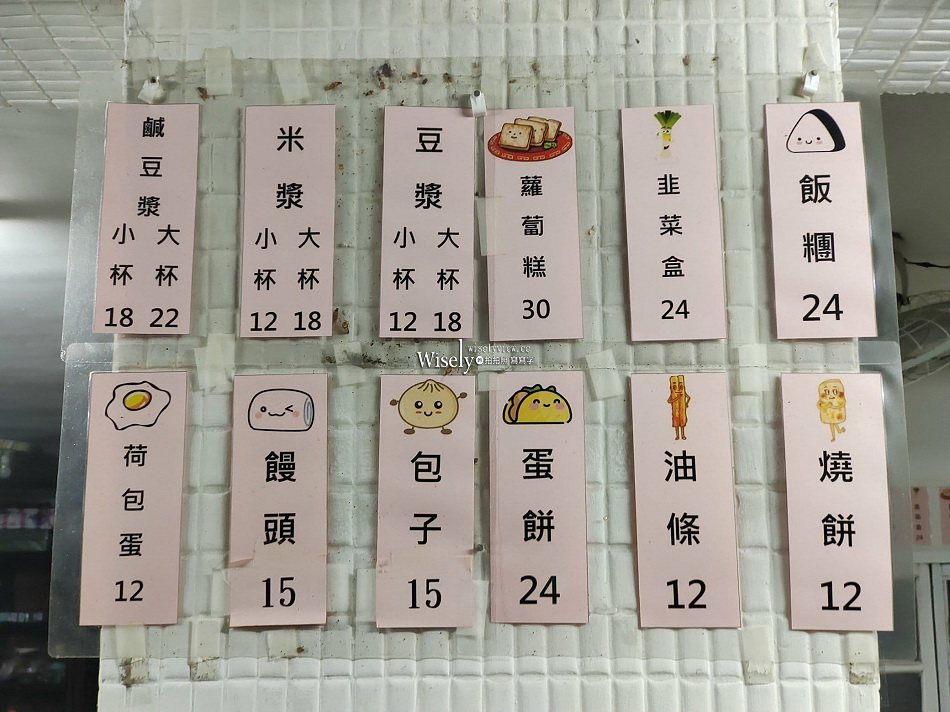 飯糰
24
韭菜盒
24
蘿蔔糕
30
豆漿
大杯
18
小杯
12
米漿
大杯
18
小杯
12
鹹豆漿
大杯
22
小杯
18
燒餅
12
油條
12
蛋餅
24
包子
15
饅頭
15
荷包蛋
12
wiselyview.cc
Wisely拍拍照寫寫字